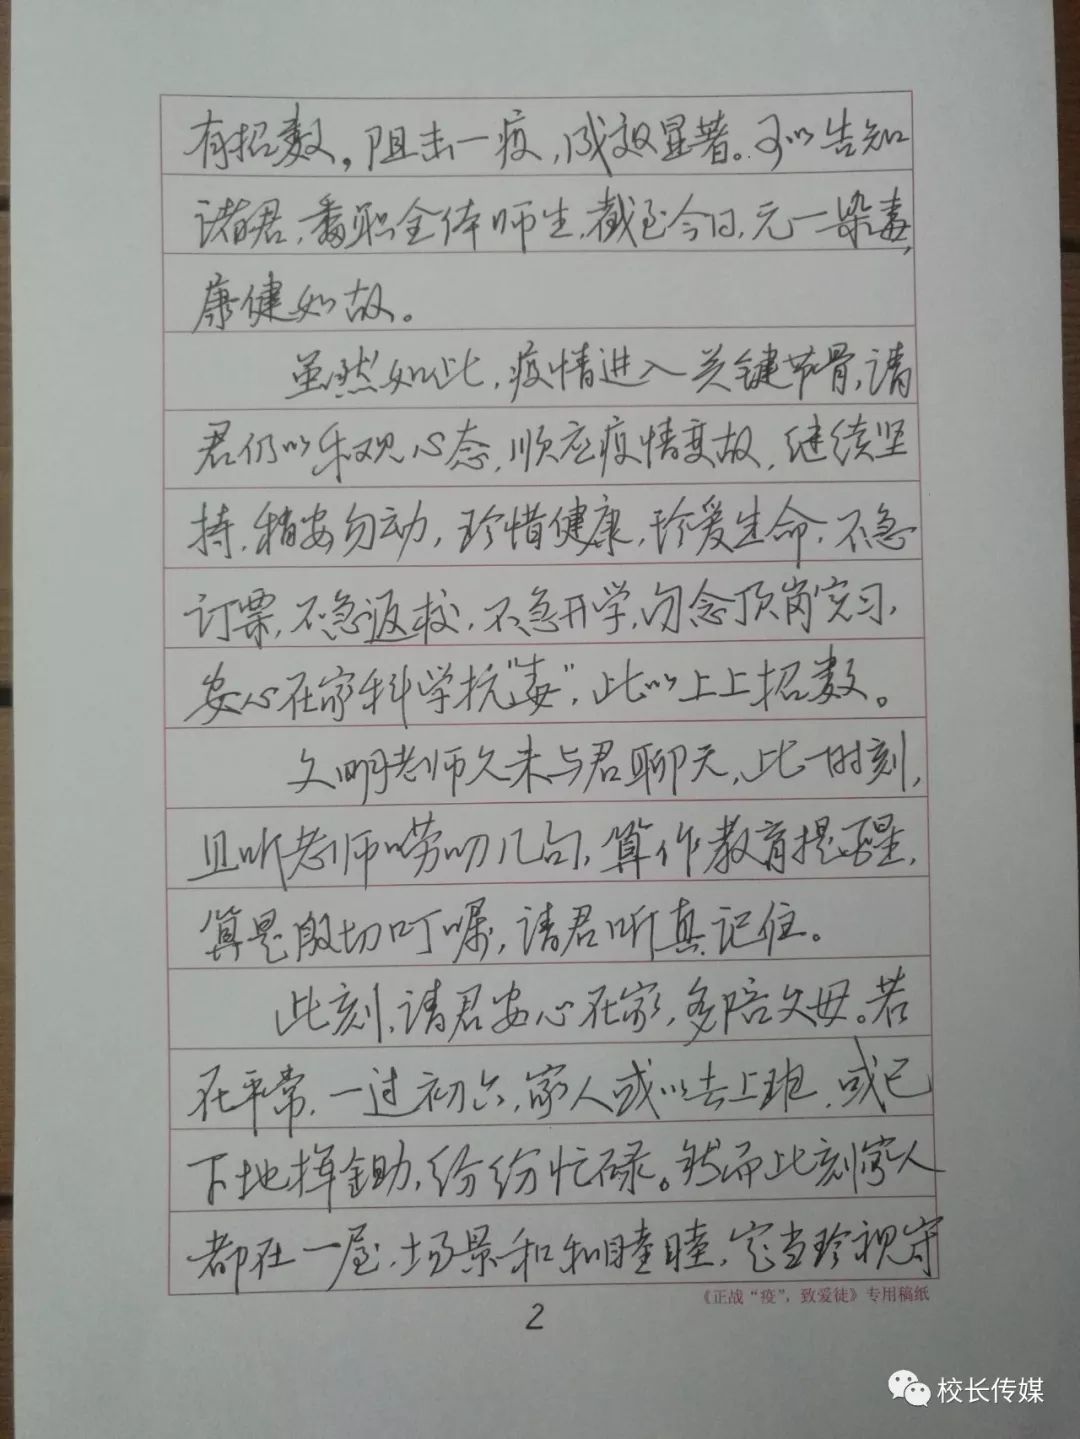 有招数，阻击一疫，成效显著。可以告知
诸君，番职全体师生，截至今日，无一染毒，
康健如故。
虽然如此，疫情进入关键节骨，请
君仍以乐观心态，顺应疫情变故，继续坚
持，稍安勿动，珍惜健康，珍爱生命，不急
订票，不急返校，不急开学，勿念顶岗实习，
安心在家科学抗“毒”，此以上上招数。
文明老师久未与君聊天，此一时刻，
且听老师唠叨几句，算作教育提醒，
算是殷切叮嘱，请君听真记住。
此刻，请君安心在家，多陪父母。若
在平常，一过初六，家人或以去上班，或已
下地挥锄，纷纷忙碌。然而此刻家人
都在一屋，场景和和睦睦，定当珍视守
《正战“疫”，致爱徒》专用稿纸
2
校长传媒